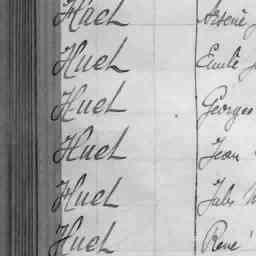 Huet Arsène
Huet Emile
Huet Georges
Huet Jean
Huet Jules
Huet René